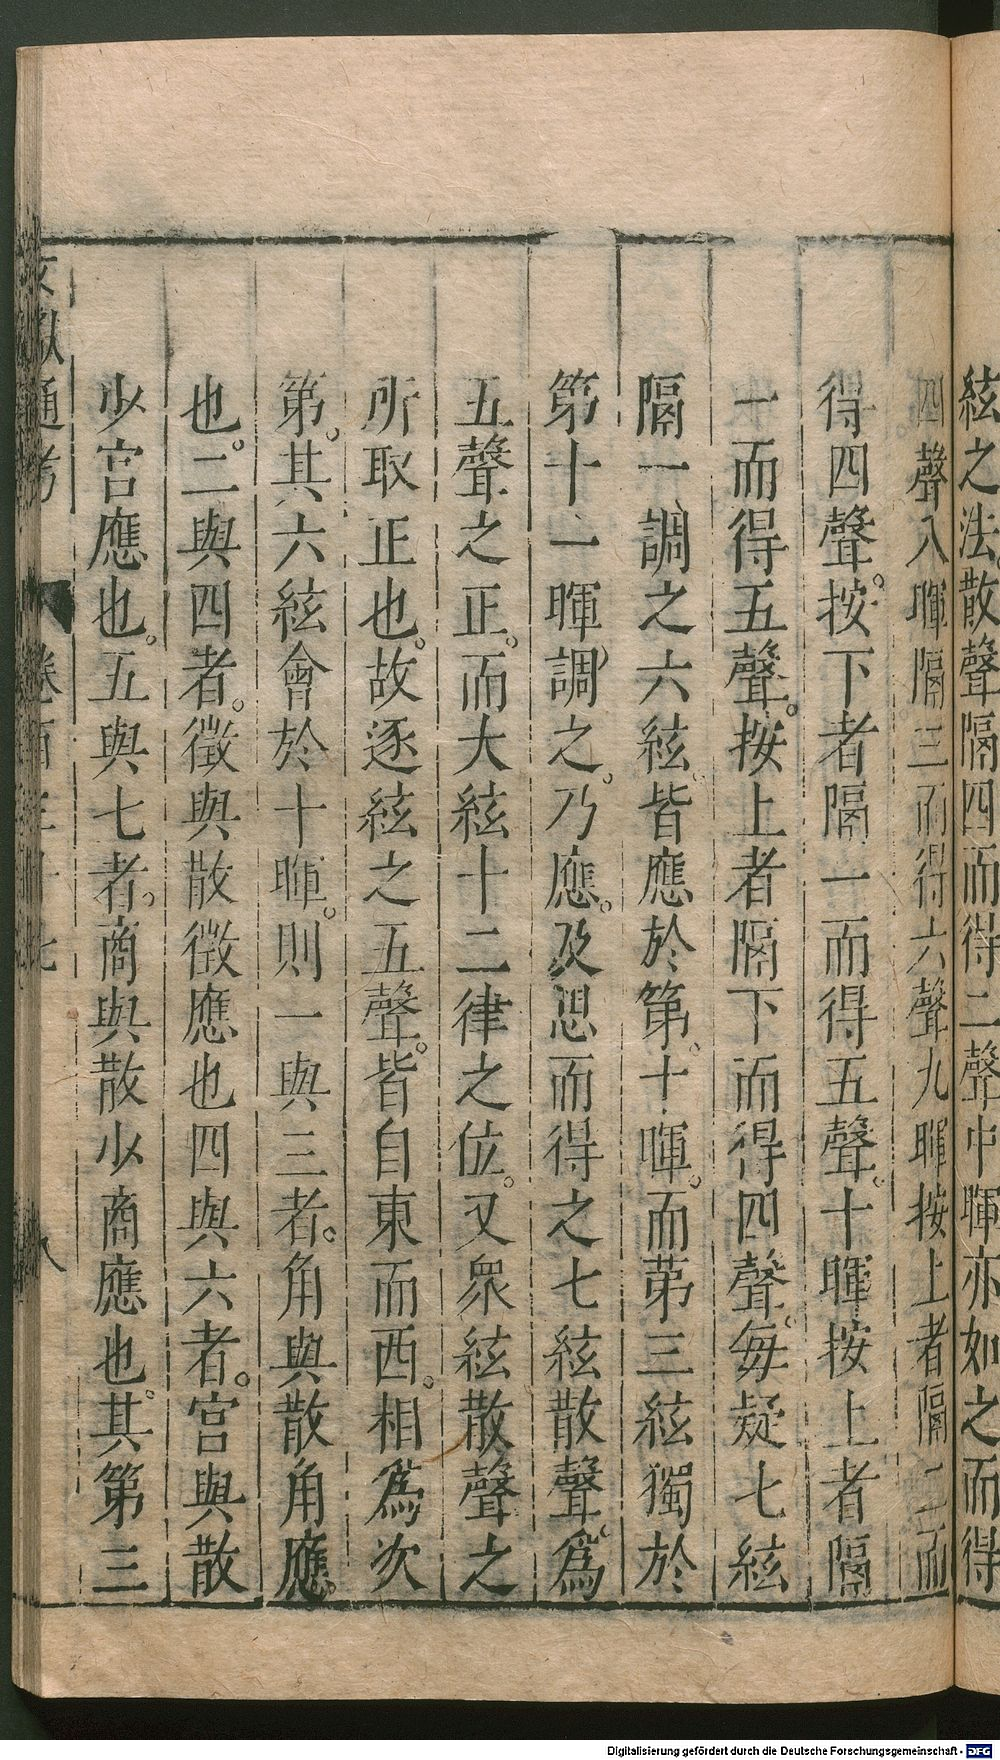 絃之法散聲隔四而得二聲中暉亦如之而得
四聲八暉隔三而得六聲九暉按上者隔二而
得四聲。按下者隔一而得五聲。十暉按上者隔
一而得五聲。按上者隔下而得四聲。每疑七絃
隔一調之六絃。皆應於第十暉。而第三絃獨於
第十一暉調之。乃應。及思而得之七絃散聲。爲
五聲之正。而大絃十二律之位。又眾絃散聲之
所取正也。故逐絃之五聲。皆自東而西。相爲次
第。其六絃會於十暉。則一與三者。角與散角應。
也。二與四者。徵與散徵應也四與六者。宮與散
少宮應也。五與七者。商與散少商應也。其第三
文獻通考 卷百三十七 八
Digitalisierung gefördert durch die Deutsche Forschungsgemeinschaft - DFG